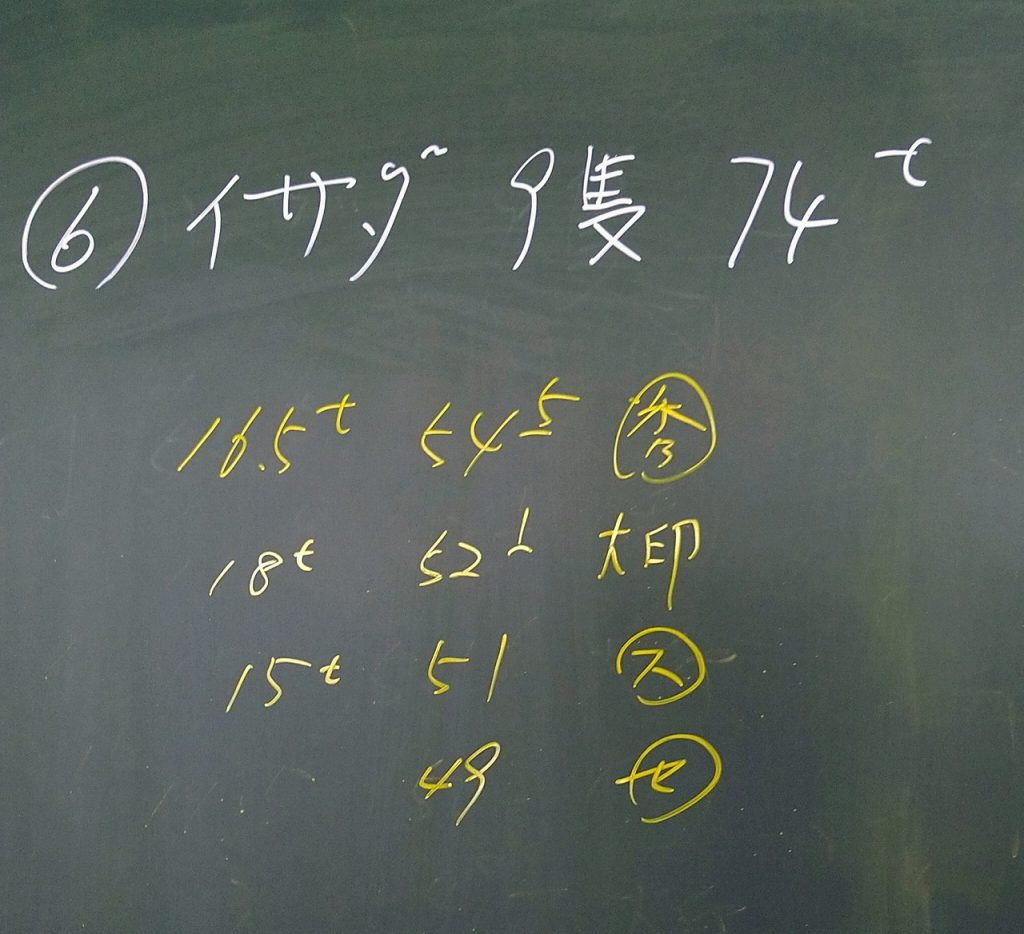 ⑥イサダ 9隻 74t
16.5t 54 5 秀
18t 52 1 大印
15t 51 ス
49 セ